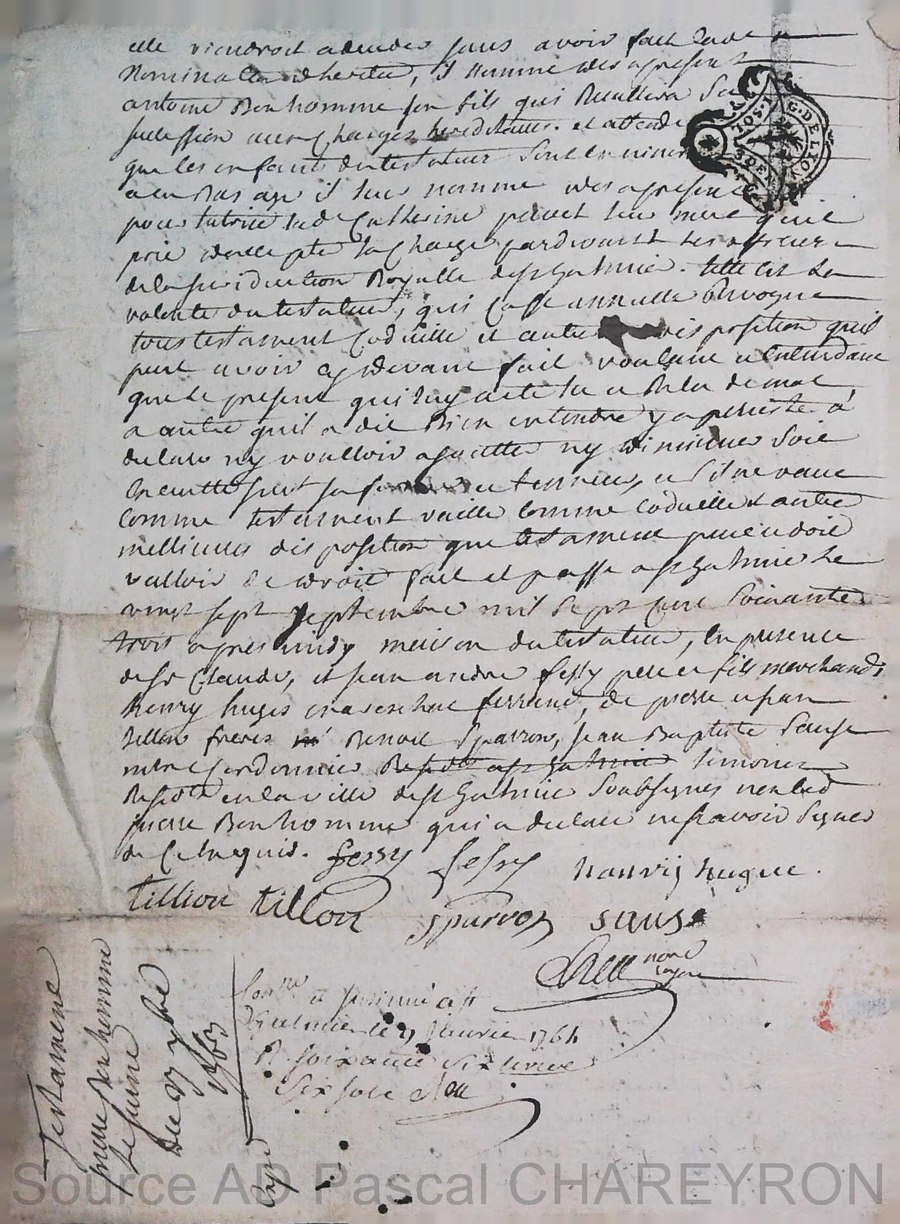 elle viendroit a deceder sans avoir fait lade
Nomination dheritier, il nomme des apresent
antoine Bonhomme son fils qui Recullira Sa
sucession aux Charges hereditaires. et attendu
que les enfants du testateur sont en minori
a en Bas age il leur nomme des apresent
pour tutrice lade Catherine leur mere quil
prie daccepter la Charge pardevant les officiers
de la jurisdiction Royalle de st Galmier. telle est la
volonté du testateur, qui Casse annulle Revoque
tous testament Codicille et autre disposition quil
peut avoir cy devant fait voulant et Entendant
que le present qui luy a ete lu a Relu de mot
a autre quil a dit Bien entendre y a persisté a
declaré ny voulloir ajoutter ny diminuer soit
Executté suivant sa forme et teneur, et sil ne vaut
comme testament vaille comme codicille et autre
meillieure disposition que testament peut et doit
valloir de droit fait et passé a st Galmier le
vingt sept septembre mil sept cent soixante
trois apres midy maison du testateur, En presence
de Sr Claude, et jean andré fessy pere et fils marchands
henry hugues ferrand, de pierre et jean
tillion freres Benoit Sparron, jean Baptiste Sauze
mtre Cordonnier Residt a st Galmier temoins
Residt en la ville de st Galmier Soubsignés non led
pierre Bonhomme qui a declaré ne scavoir signer
de Ce Requis. fessy fessy hanrig hugue.
tillion tillon Sparron saus
notre
Con.lle et insinué a st
Galmier le 27 fevrier 1764
R. soixante six livres
six sols
Testament
pierre Bonhomme
le jeune
Du 27 7bre
1763
Expé
10S. G. DE LYON
Source AD Pascal CHAREYRON